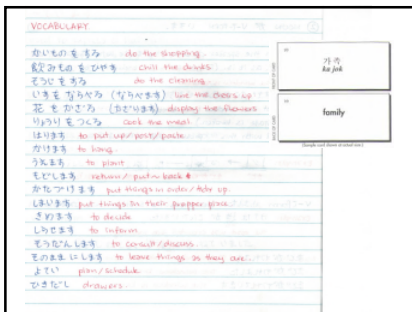 VOCABULARY
かいもの を する do the shopping.
飲みもの を ひやす chill the drinks
そうじ を する do the cleaning.
いす を ならべる (ならべます) line the chairs up
花 を かざる (かざります) display the flowers
りょうり を つくる cook the meal
はります to put up/post/paste
かけます to hang.
うえます to plant
もどします return/put back
かたづけます put things in order/tidy up.
しまいます put things in their propper place.
きめます to decide
しらせます to inform
そうだんします to consult/discuss.
そのままにします to leave things as they are.
よてい plan/schedule
ひきだし drawers.
가족
ka jok
family